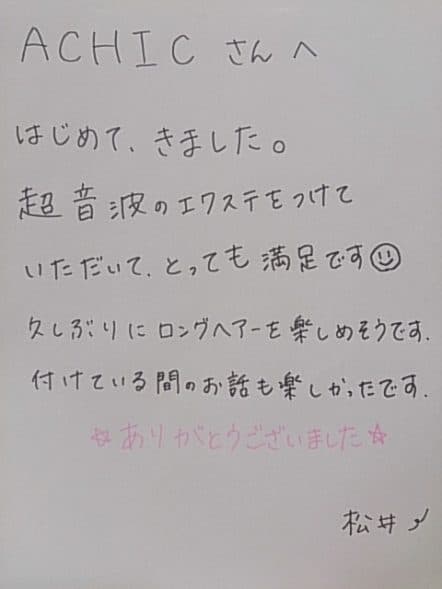 ACHIC さんへ
はじめて、きました。
超音波のエクステをつけて
いただいて、とっても満足です☺
久しぶりにロングヘアーを楽しめそうです.
付けている間のお話も楽しかったです.
☆ありがとうございました☆
松井